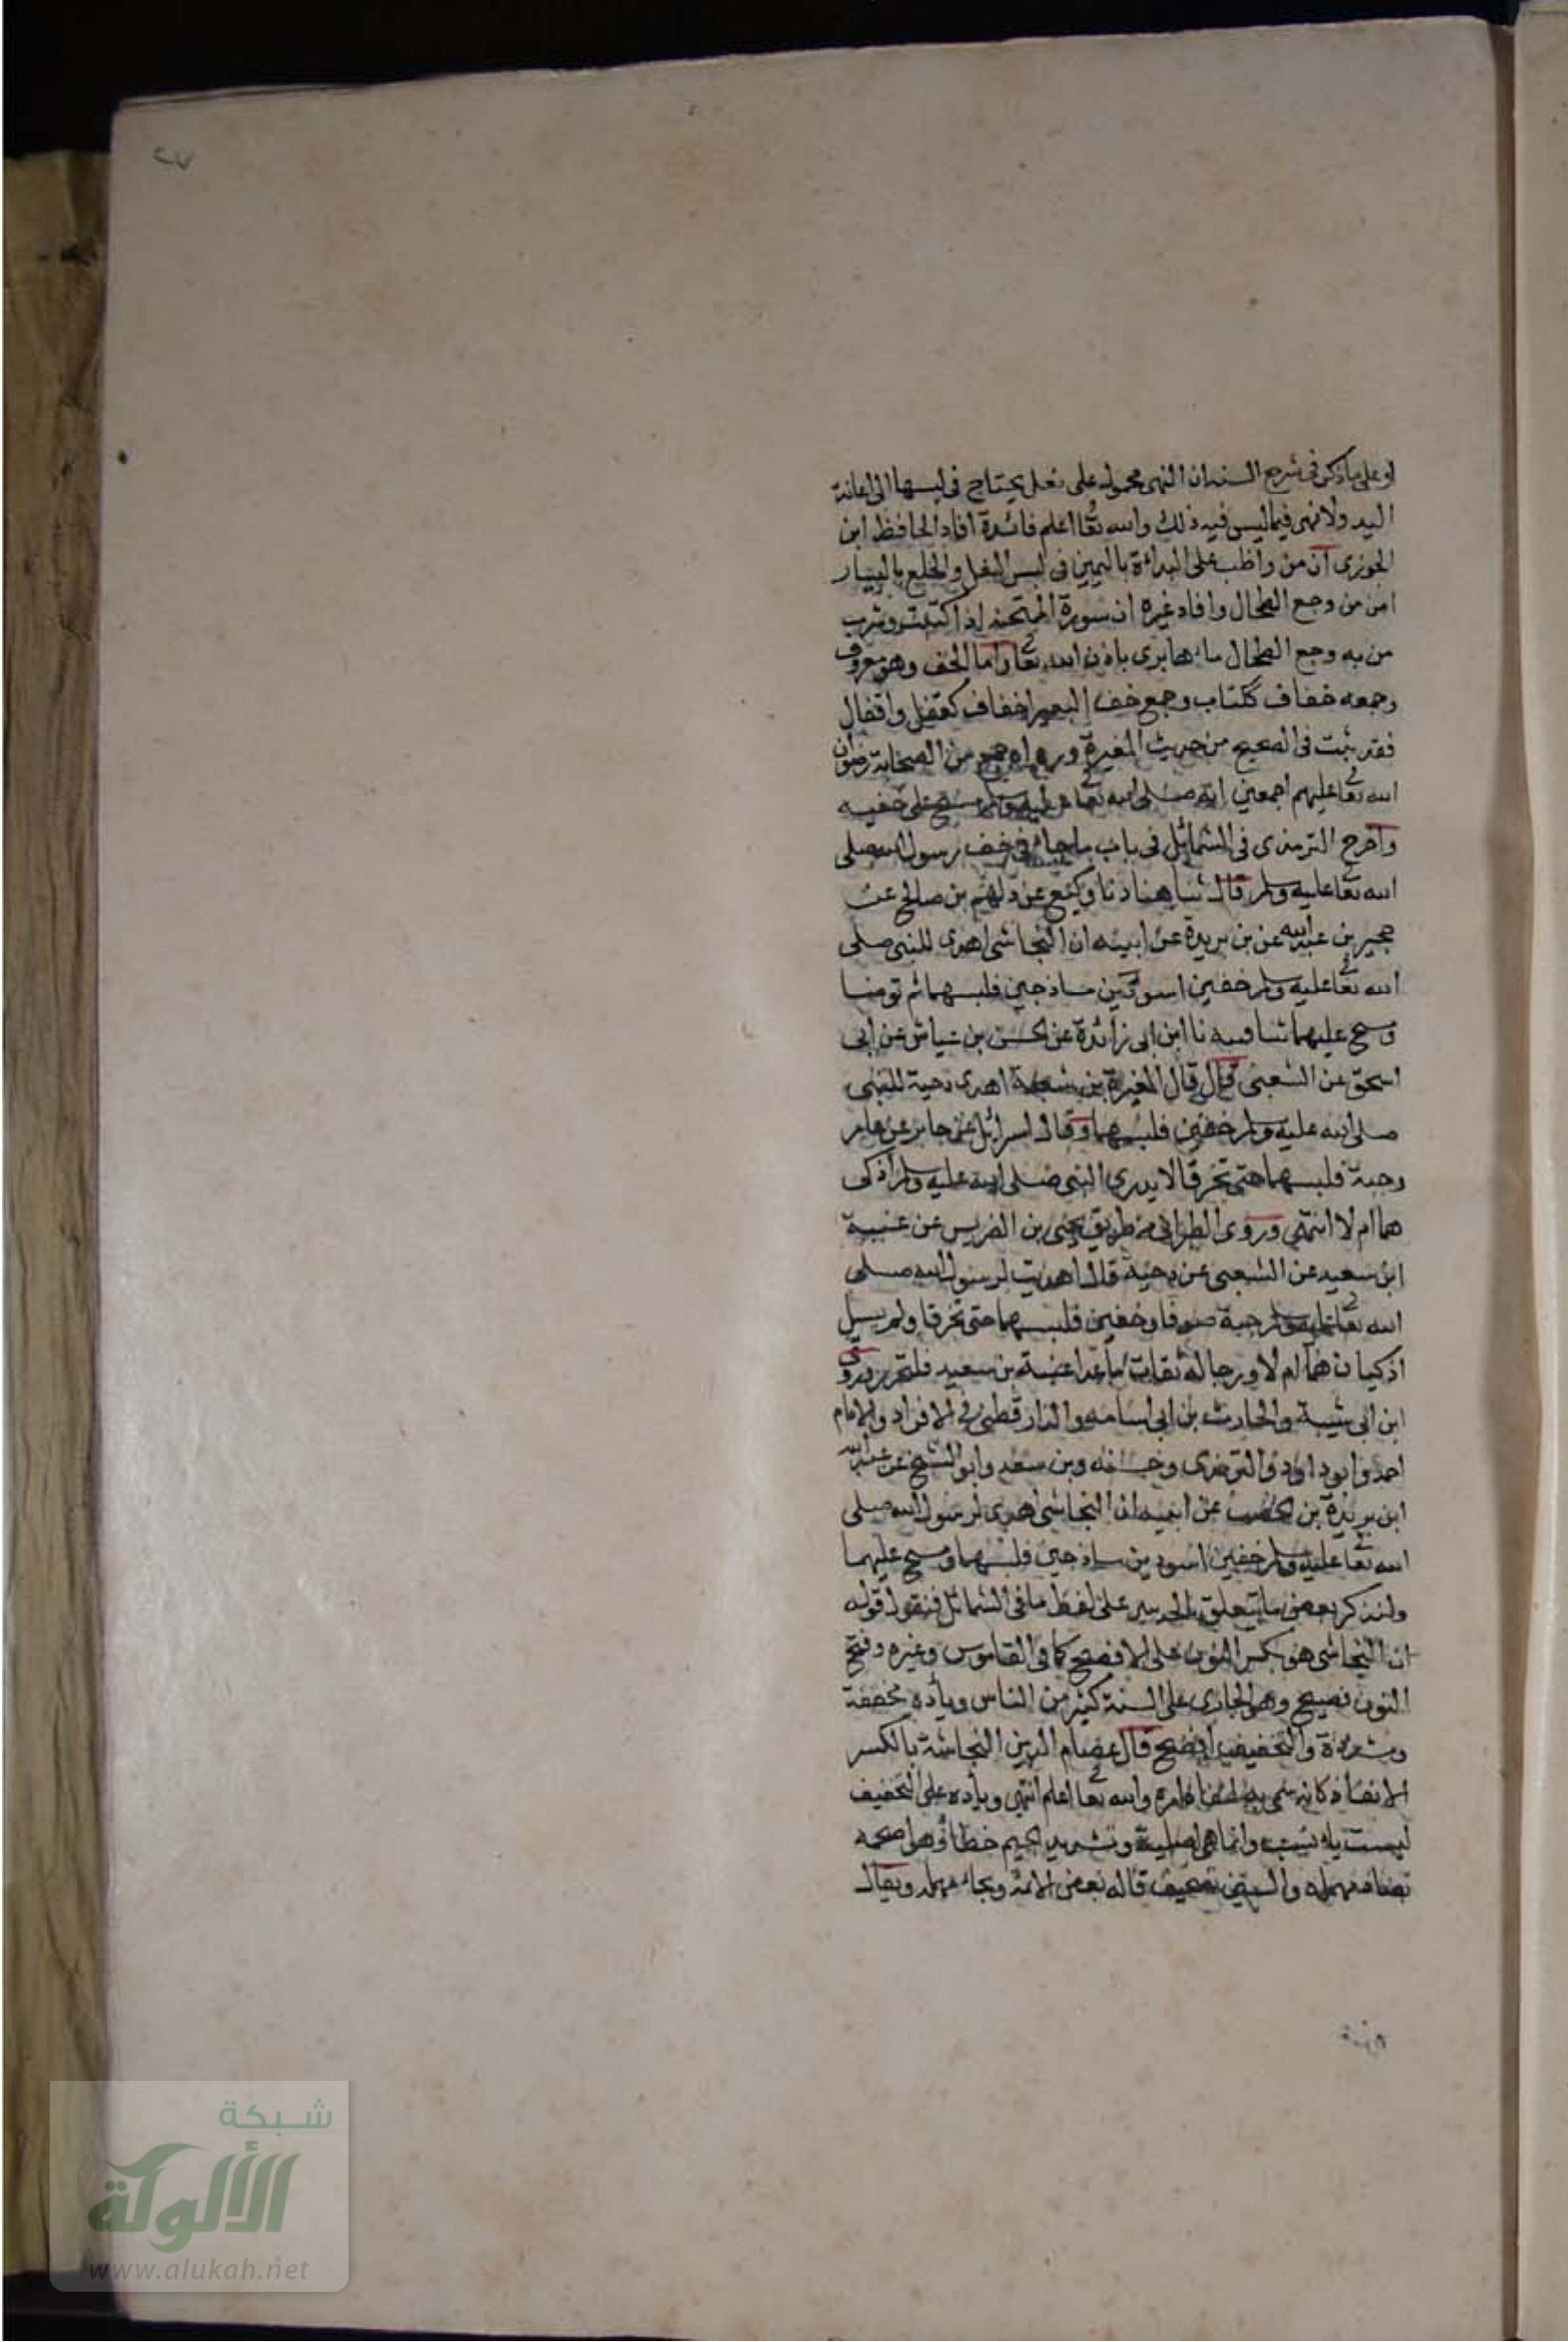 او على ما ذكر في شرح السنه ان النهى محمول على نعل يحتاج في لبسها الى اعانة
اليد ولا نهى فيما ليس فيه ذلك والله تعا اعلم فائدة افاد الحافظ ابن
الجوزى ان من واظب على البداءة باليمين في لبس النعل والخلع باليسار
امن من وجع الطحال وافاد غيره ان سورة الممتحنه اذا كتبت وشرب
من به وجع الطحال ماءها برى باذن الله تعا واما الخف وهو معروف
وجمعه خفاف ككتاب وجمع خف البعير اخفاف كقفل واقفال
فقد ثبت في الصحيح من حديث المغيرة ورواه جمع من الصحابة رضوان
الله تعا عليهم اجمعين انه صلى الله تعا عليه وسلم مسح على خفيه
واخرج الترمذى في الشمائل في باب ما جاء في خف رسول الله صلى
الله تعا عليه وسلم قال ثنا هناد نا وكيع عن دلهم بن صالح عن
حجير بن عبدالله عن بن بريدة عن ابيه ان النجاشى اهدى للنبى صلى
الله تعا عليه وسلم خفين اسودين ساذجين فلبسهما ثم توضا
ومسح عليهما ثنا قتيبه نا ابن ابى زائدة عن الحسن بن عياش عن ابى
اسحق عن الشعبى قال قال المغيرة بن شعبة اهدى دحية للنبى
صلى الله عليه وسلم خفين فلبسهما وقال اسرائيل عن جابر عن عامر
وجبة فلبسهما حتى تخرقا لا يدرى النبى صلى الله عليه وسلم اذكى
هما ام لا انتهى وروى الطبرانى من طريق يحيى بن الضريس عن عنبسة
ابن سعيد عن الشعبى عن دحية قال اهديت لرسول الله صلى
الله تعا عليه وسلم جبة صوفا وخفين فلبسهما حتى تخرقا ولم يسل
اذكيان هما ام لا ورجاله ثقات ما عدا عنبسة بن سعيد وروى
ابن ابى شيبة والحارث بن ابى اسامه والدارقطنى في الافراد والامام
احمد وابو داود والترمذى وحسنه وبن سعد وابو الشيخ عن عبدالله
ابن بريدة بن الحصيب عن ابيه ان النجاشى اهدى لرسول الله صلى
الله تعا عليه وسلم خفين اسودين ساذجين فلبسهما ومسح عليهما
ولنذكر بعض ما يتعلق على لفظ ما في الشمائل فنقول قوله
ان النجاشى هو بكسر النون على الافصح كما في القاموس وغيره وفتح
النون فصيح وهو الجارى على السنة كثير من الناس وياءه مخففة
ومشددة والتخفيف افصح قال عصام الدين النجاشة بالكسر
الانفاذ كانه سمى به لنفاذ امره والله تعا اعلم انتهى وياءه على التخفيف
ليست ياء نسب وانما هى اصلية وتشديد الجيم خطا وهو اصحمه
بصاد مهمله والسين تصحيف قاله بعض الائمة وبحاء مهملة ويقال
شبكة
الألوكة
www.alukah.net